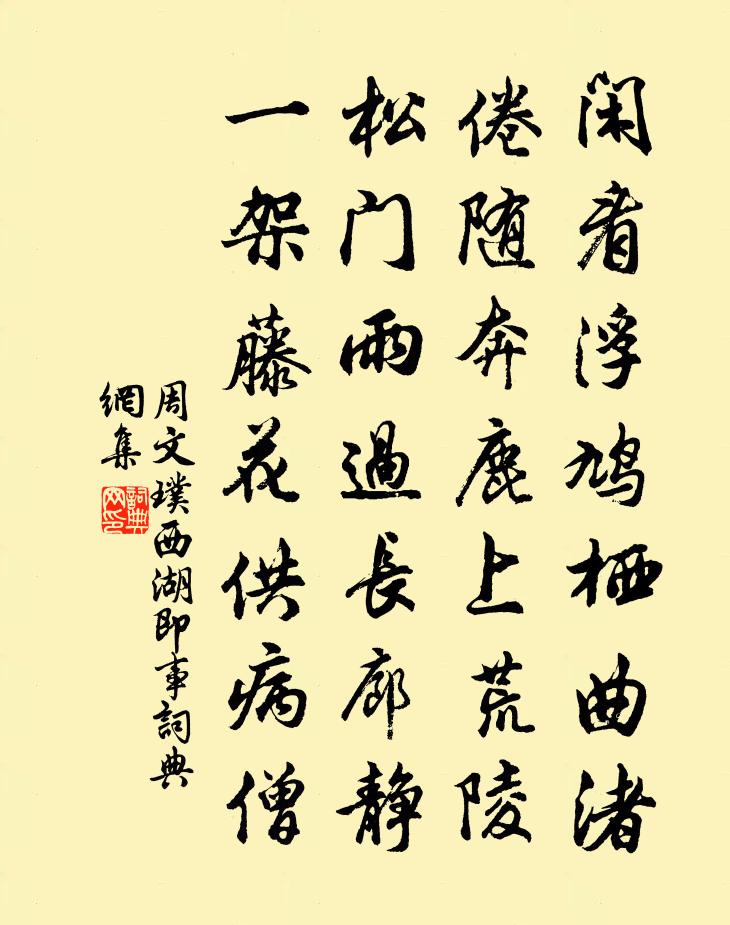 闲看浮鸠栖曲渚
倦随奔鹿上荒陵
松门雨過長廊静
一架藤花供病僧
周文璞西湖即事詞典
網集
詞典
网印